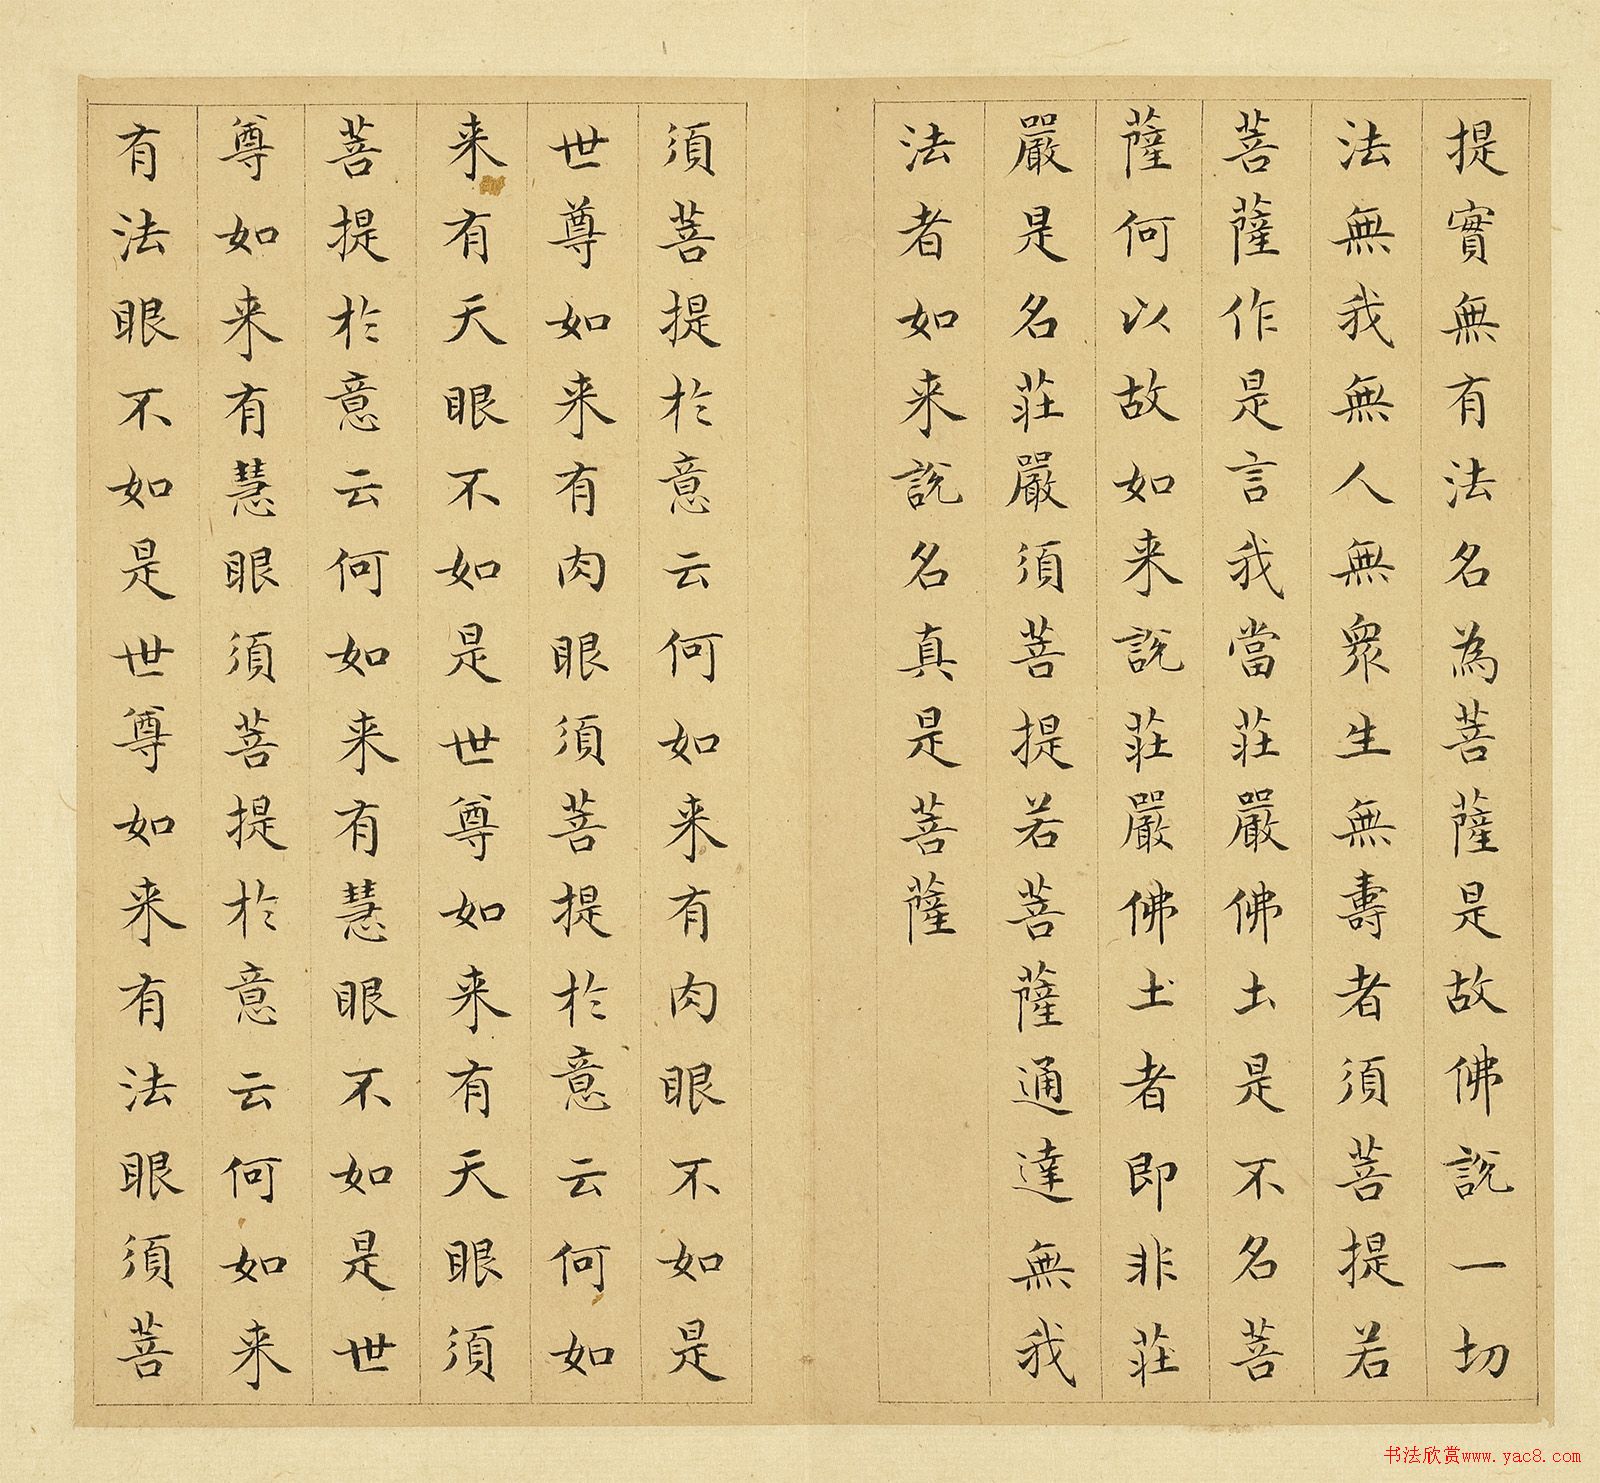 提實無有法名為菩薩是故佛說一切
法無我無人無眾生無壽者須菩提若
菩薩作是言我當莊嚴佛土是不名菩
薩何以故如来說莊嚴佛土者即非莊
嚴是名莊嚴須菩提若菩薩通達無我
法者如来說名真是菩薩
須菩提於意云何如来有肉眼不如是
世尊如来有肉眼須菩提於意云何如
来有天眼不如是世尊如来有天眼須
菩提於意云何如来有慧眼不如是世
尊如来有慧眼須菩提於意云何如来
有法眼不如是世尊如来有法眼須菩
书法欣赏www.yac8.com